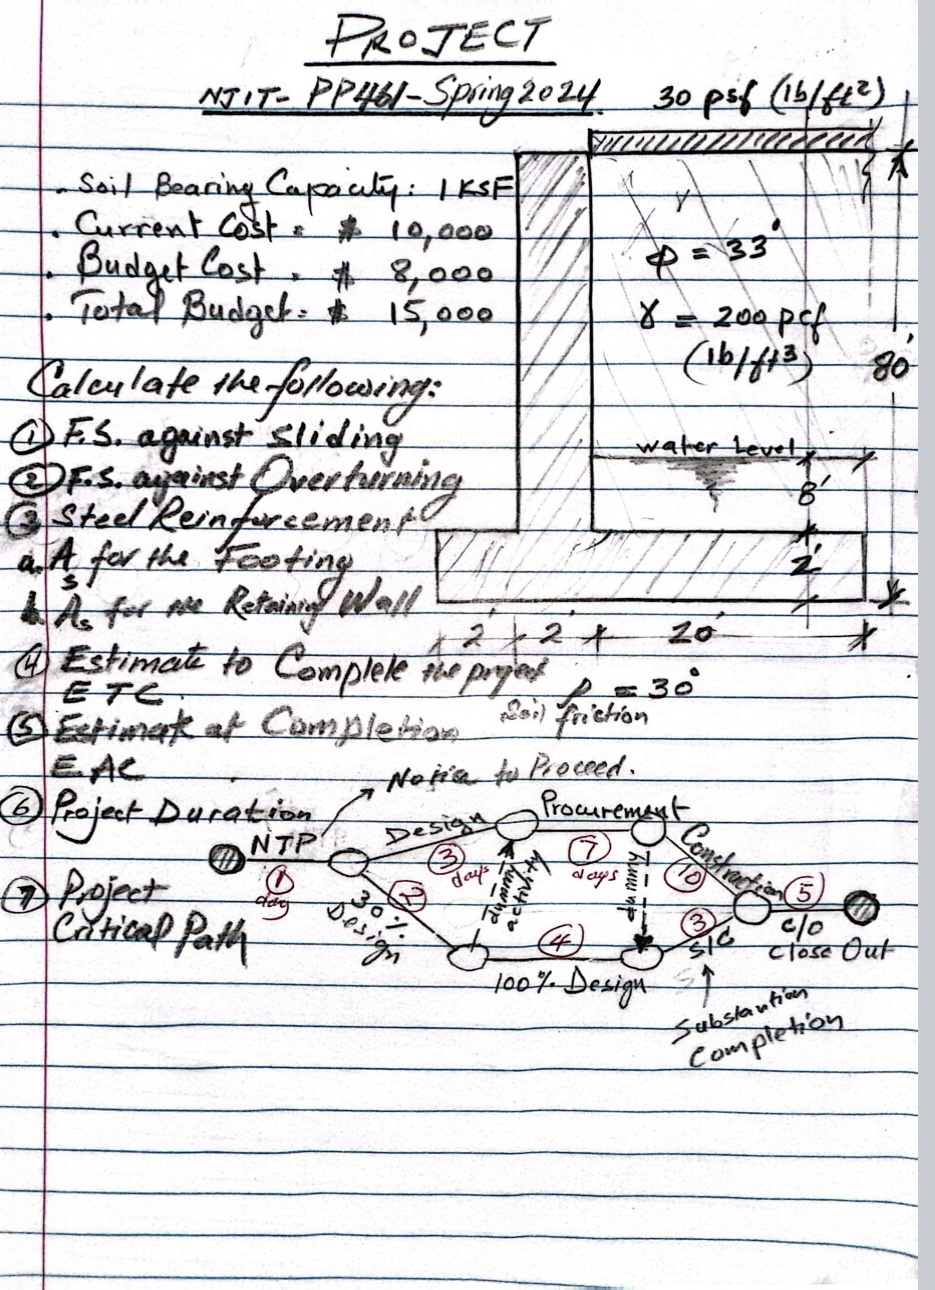 PROJECT
NJIT- PP461-Spring 2024
30 psf (lb/ft²)
. Soil Bearing Capacity: 1 KSF
. Current Cost = $ 10,000
. Budget Cost = $ 8,000
. Total Budget = $ 15,000
ϕ = 33°
γ = 200 pcf
(lb/ft³)
80'
Calculate the following:
① F.S. against Sliding
② F.S. against Overturning
③ Steel Reinforcement
a. As for the Footing
b. As for the Retaining Wall
water Level
8'
2'
2' 2' 20'
④ Estimate to Complete the project
ETC.
ρ = 30°
Soil friction
⑤ Estimate at Completion
E.AC
Notice to Proceed.
⑥ Project Duration
NTP
1
day
Design
3
days
Procurement
7
days
Construction
10
5
c/o
Close Out
30%
Design
2
dummy
activity
dummy
4
100% Design
3
S/C
Substantion
Completion
⑦ Project
Critical Path